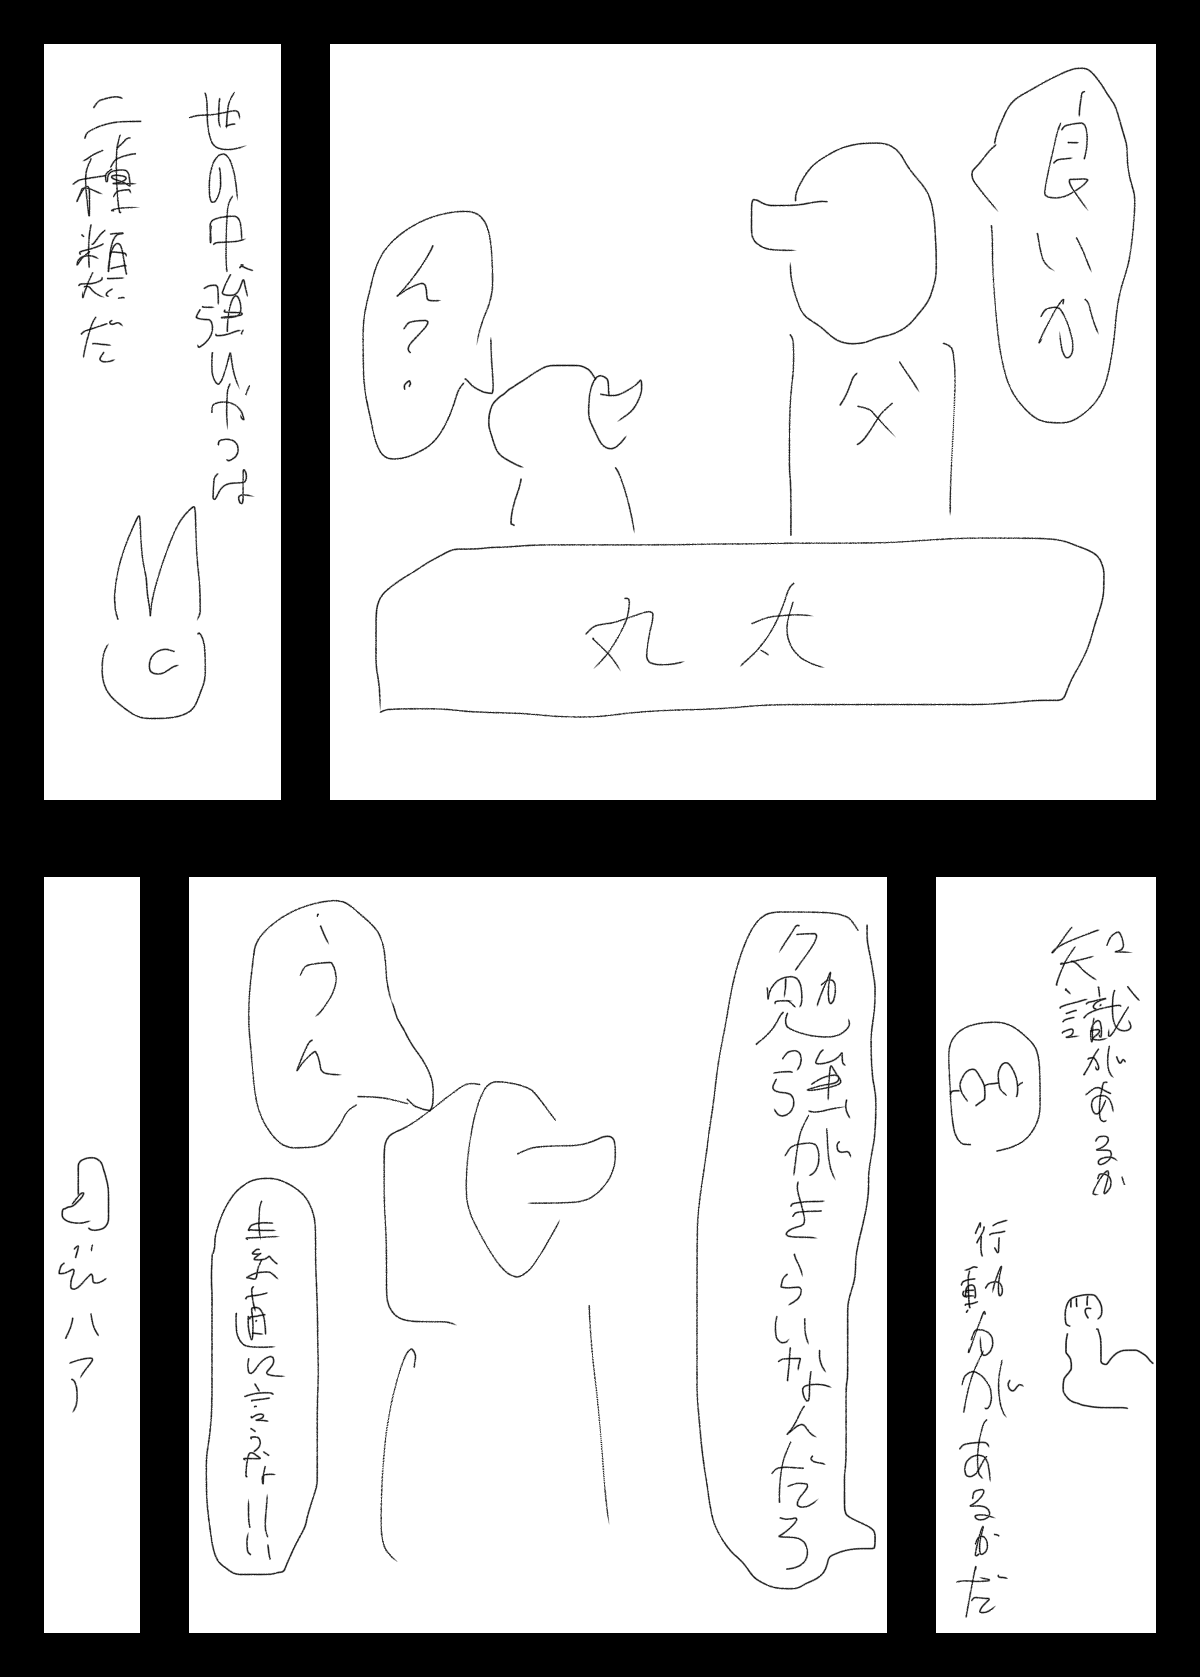 良いか
父
ん?
丸太
世の中強いやつは
二種類だ
知識があるか
行動力があるかだ
勉強がきらいなんだろ
うん
素直に言うな!!
ハァ